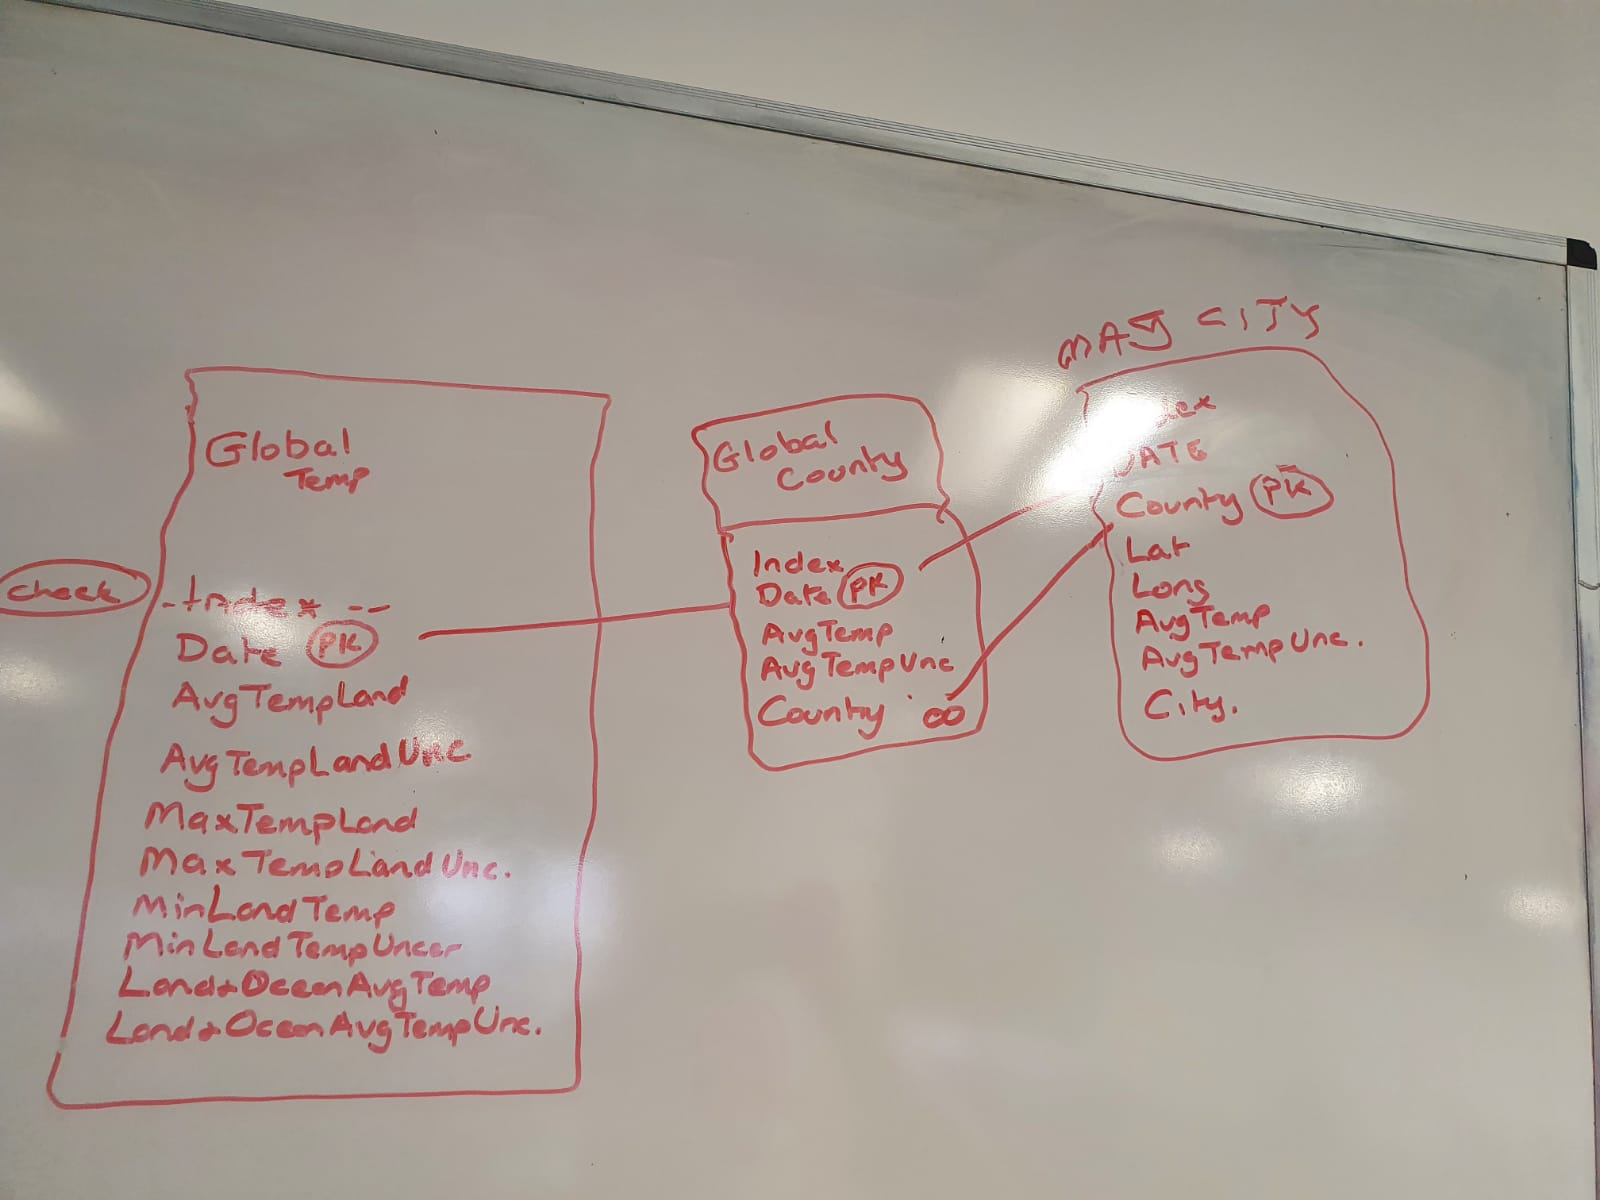 Global
Temp
check
-Index --
Date PK
AvgTempLand
AvgTempLandUnc.
MaxTempLand
MaxTempLandUnc.
MinLandTemp
MinLandTempUncer
Land+OceanAvgTemp
Land+OceanAvgTempUnc.
Global
County
Index
Date PK
AvgTemp
AvgTempUnc
County ∞
MAJ CITY
DATE
County PK
Lat
Long
AvgTemp
AvgTempUnc.
City.